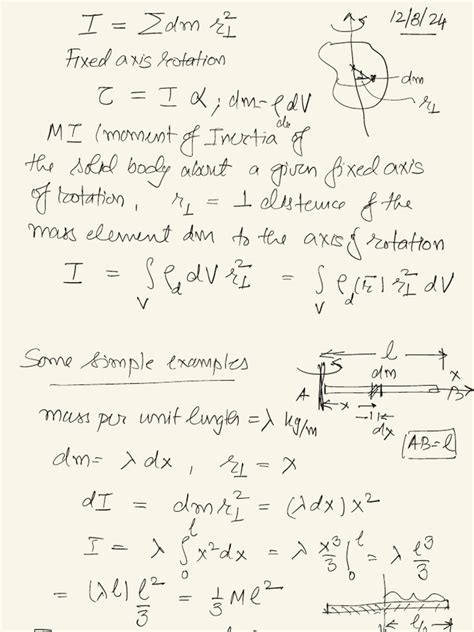 I = Σ dm r⊥²
12/8/24
Fixed axis rotation
dm
r⊥
τ = I α ; dm = ρ dV
MI (moment of Inertia of
the solid body about a given fixed axis
of rotation, r⊥ = ⊥ distance of the
mass element dm to the axis of rotation
I = ∫_V ρ_d dV r⊥² = ∫_V ρ_d(r̄) r⊥² dV
Some simple examples
l
dm
x
A
B
x
dx
AB = l
mass per unit length = λ kg/m
dm = λ dx , r⊥ = x
dI = dm r⊥² = (λ dx) x²
I = λ ∫_0^l x² dx = λ x³/3 |_0^l = λ l³/3
= (λl) l²/3 = 1/3 M l²
l/2